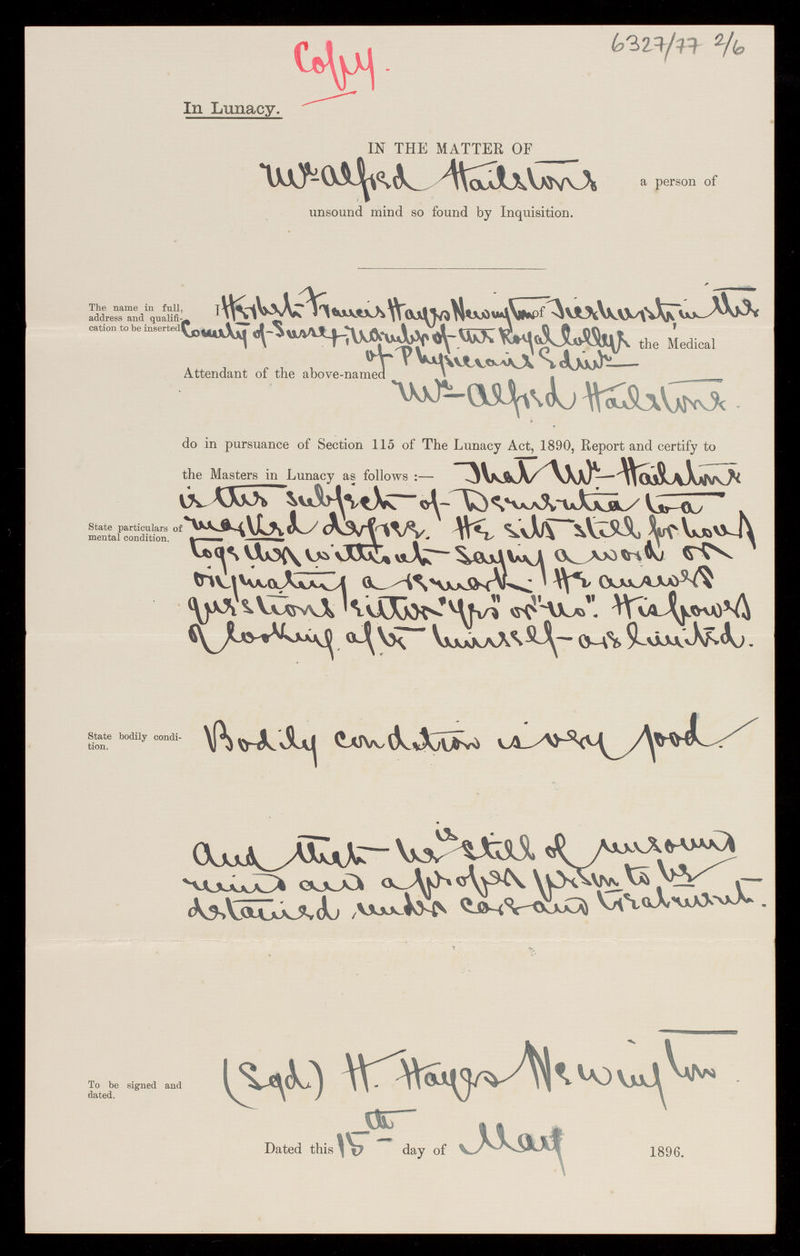 6327/77 2/6
Copy.
In Lunacy.
IN THE MATTER OF
Mr Alfred Hailstone a person of
unsound mind so found by Inquisition.
The name in full,
address and qualifi-
cation to be inserted
I Herbert Francis Hayes Newington of Ticehurst in the
County of Sussex, Member of the Royal College
of Physicians Edinr the Medical
Attendant of the above-named
Mr Alfred Hailstone.
do in pursuance of Section 115 of The Lunacy Act, 1890, Report and certify to
the Masters in Lunacy as follows :— That Mr Hailstone
is the subject of Dementia to a
State particulars of
mental condition.
marked degree. He sits still for hours
together without saying a word or
originating a remark. He answers
questions either "Yes" or "No". His powers
of looking after himself are limited.
State bodily condi-
tion.
Bodily condition is very good.
And that he is still of unsound
mind and a proper person to be
detained under care and treatment.
To be signed and
dated.
(Sgd.) H. Hayes Newington
Dated this 15th day of May 1896.